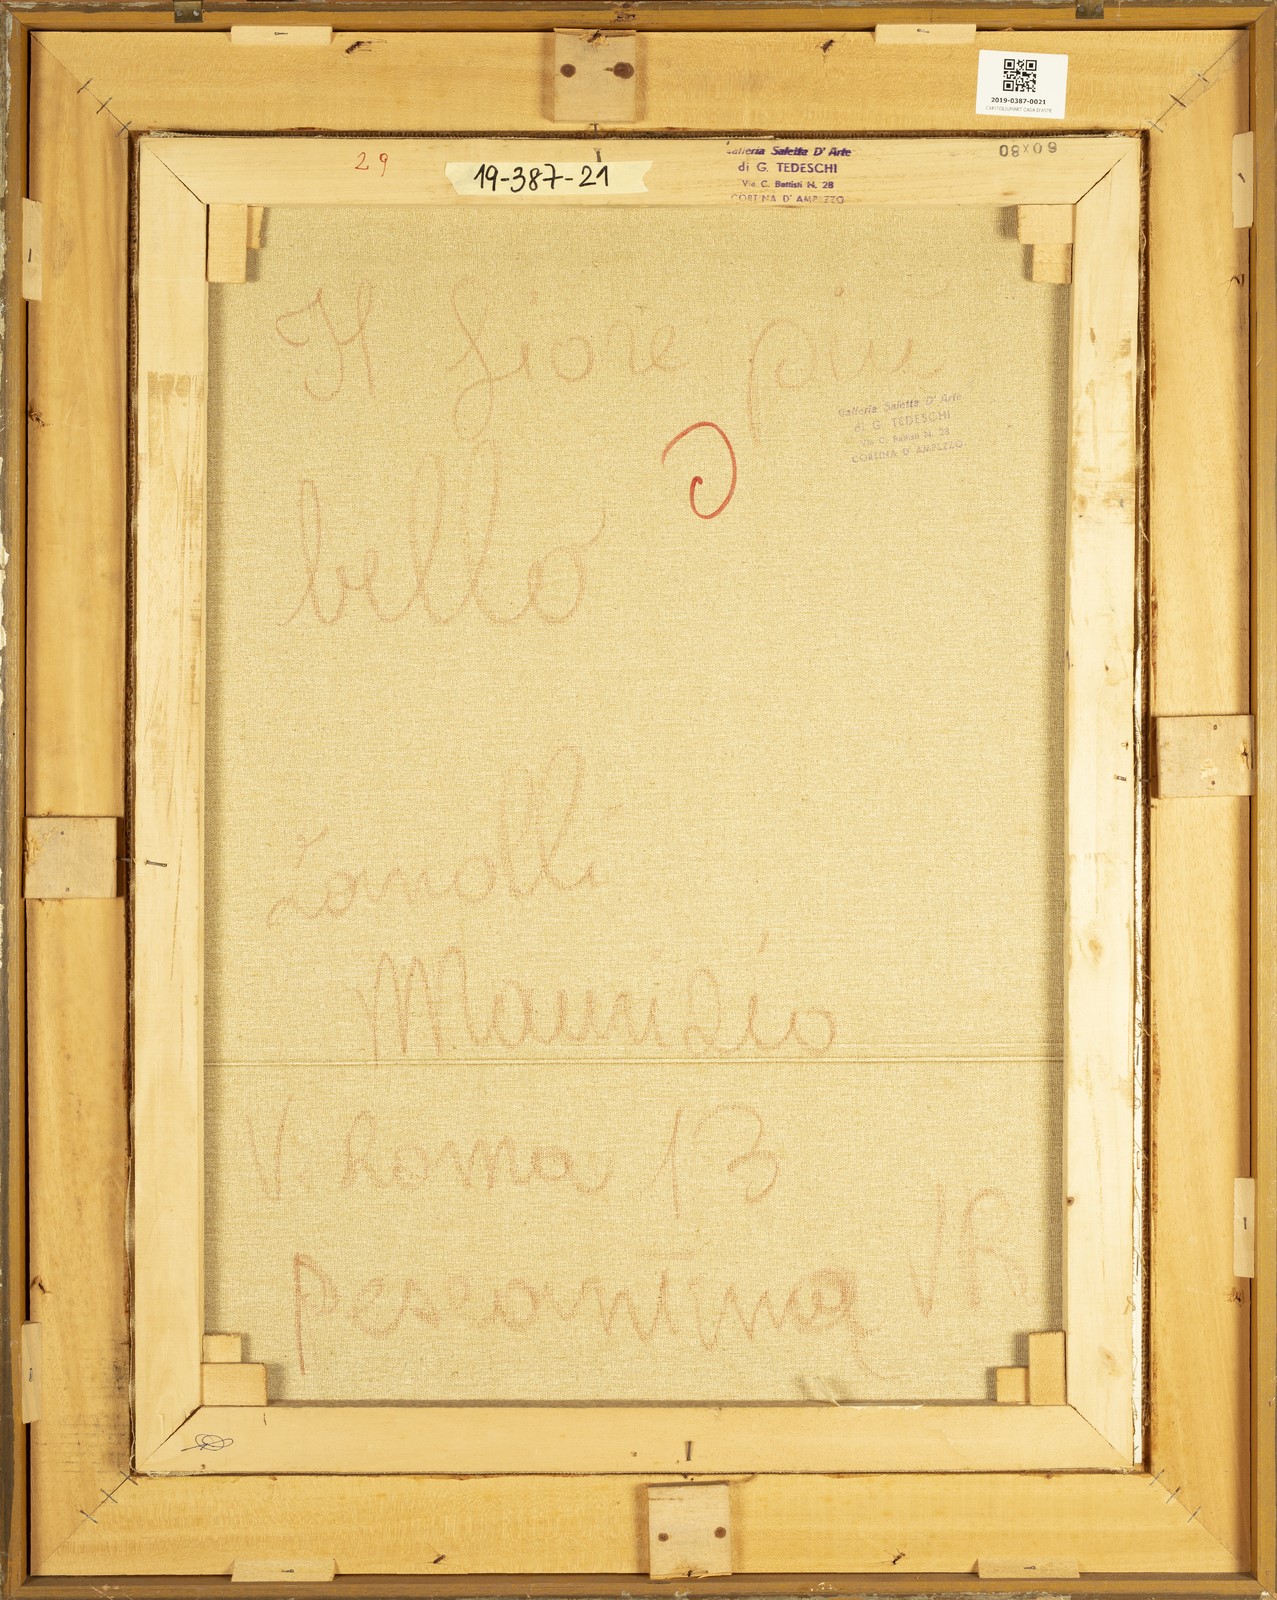 2019-0387-0021
CAPITOLIUMART CASA D'ASTE
29
19-387-21
Galleria Saletta D' Arte
di G. TEDESCHI
Via C. Battisti N. 28
CORTINA D' AMPEZZO
60X80
Il fiore più
bello
Galleria Saletta D' Arte
di G. TEDESCHI
Via C. Battisti N. 28
CORTINA D' AMPEZZO
Zanolli
Maurizio
V. Roma 13
Pescantina VR